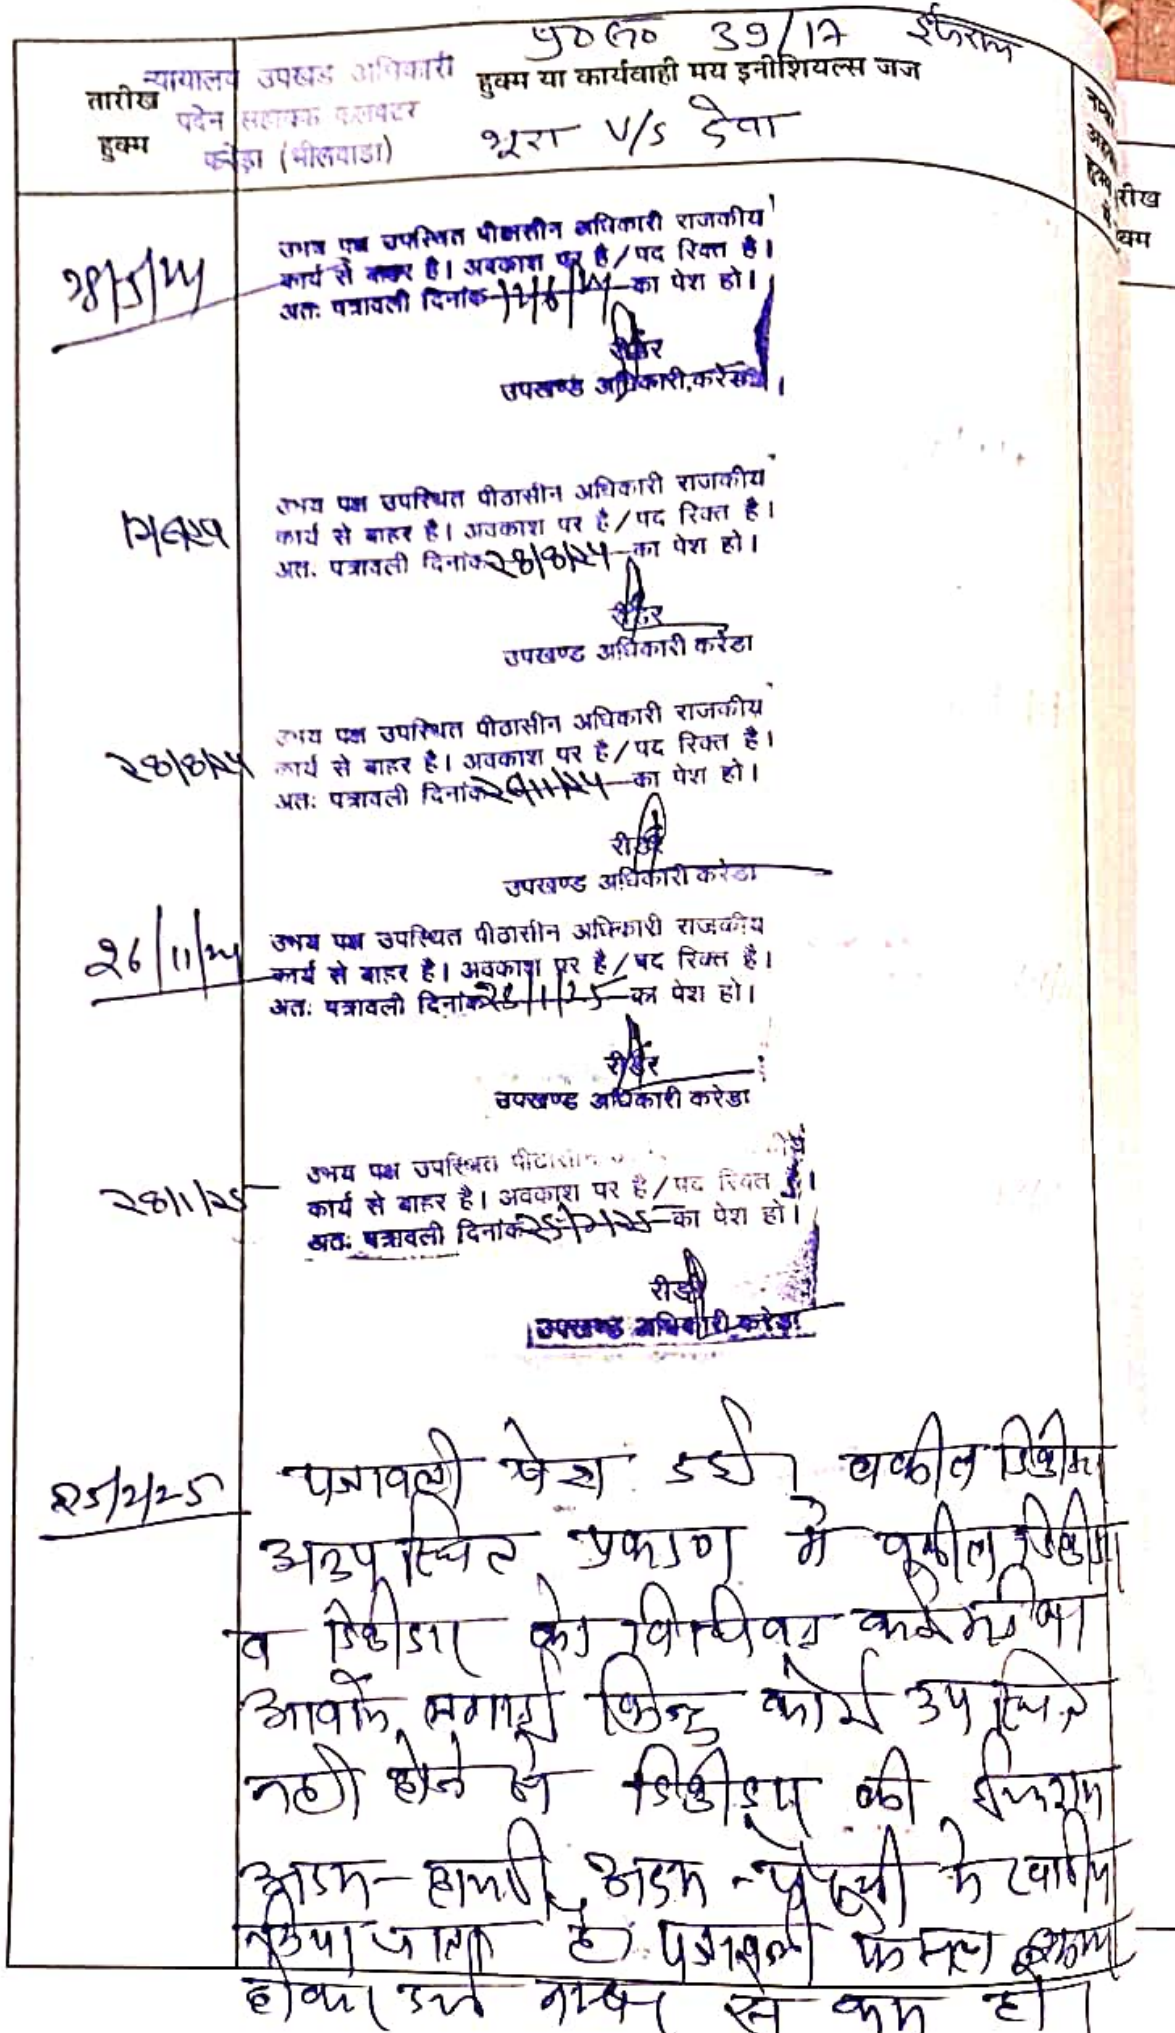 प्र०सं० 39/17 ईजराय
तारीख
हुक्म
न्यायालय उपखंड अधिकारी
पदेन सहायक कलक्टर
करेड़ा (भीलवाडा)
हुक्म या कार्यवाही मय इनीशियल्स जज
भूरा V/S देवा
रीख
28/5/24
उभय पक्ष उपस्थित पीठासीन अधिकारी राजकीय
कार्य से बाहर है। अवकाश पर है/पद रिक्त है।
अतः पत्रावली दिनांक 12/6/24 का पेश हो।
रीडर
उपखण्ड अधिकारी, करेडा
12/6/24
उभय पक्ष उपस्थित पीठासीन अधिकारी राजकीय
कार्य से बाहर है। अवकाश पर है/पद रिक्त है।
अतः पत्रावली दिनांक 28/8/24 का पेश हो।
रीडर
उपखण्ड अधिकारी करेडा
28/8/24
उभय पक्ष उपस्थित पीठासीन अधिकारी राजकीय
कार्य से बाहर है। अवकाश पर है/पद रिक्त है।
अतः पत्रावली दिनांक 26/11/24 का पेश हो।
रीडर
उपखण्ड अधिकारी करेडा
26/11/24
उभय पक्ष उपस्थित पीठासीन अधिकारी राजकीय
कार्य से बाहर है। अवकाश पर है/पद रिक्त है।
अतः पत्रावली दिनांक 28/1/25 का पेश हो।
रीडर
उपखण्ड अधिकारी करेडा
28/1/25
उभय पक्ष उपस्थित पीठासीन
कार्य से बाहर है। अवकाश पर है/पद रिक्त है।
अतः पत्रावली दिनांक 25/2/25 का पेश हो।
रीडर
उपखण्ड अधिकारी करेडा
25/2/25
पत्रावली पेश हुई। वकील डिक्रीदार
अनुपस्थित प्रकरण में वकील डिक्रीदार
व डिक्रीदार को विधिवत कई मर्तबा
आवाजे लगाई किन्तु कोई उपस्थित
नही होने से डिक्रीदार की ईजराय
अदम-हाजरी अदम-पैरवी मे खारीज
किया जाता है। पत्रावली फैसल शुमार
होकर दर्ज नम्बर से कम हो।